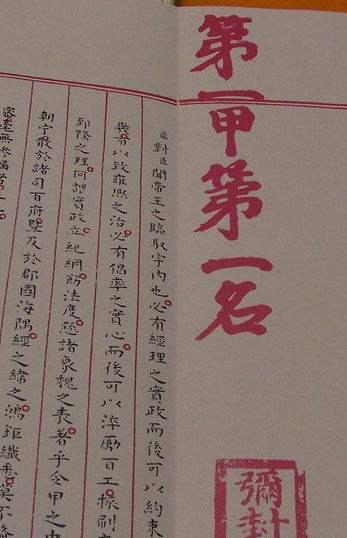 第一甲第一名
彌封
臣對臣聞帝王之臨馭宇內也必有經理之實政而後可以約束
以致雍熙之治必有倡率之實心而後可以淬勵百工振刷
郅隆之理何謂實政立紀綱飭法度懸諸象魏之表著乎令甲之中
朝宁散於諸司百府暨及於郡國海隅經之緯之鴻鉅纖悉莫不
密毫無滲漏者是